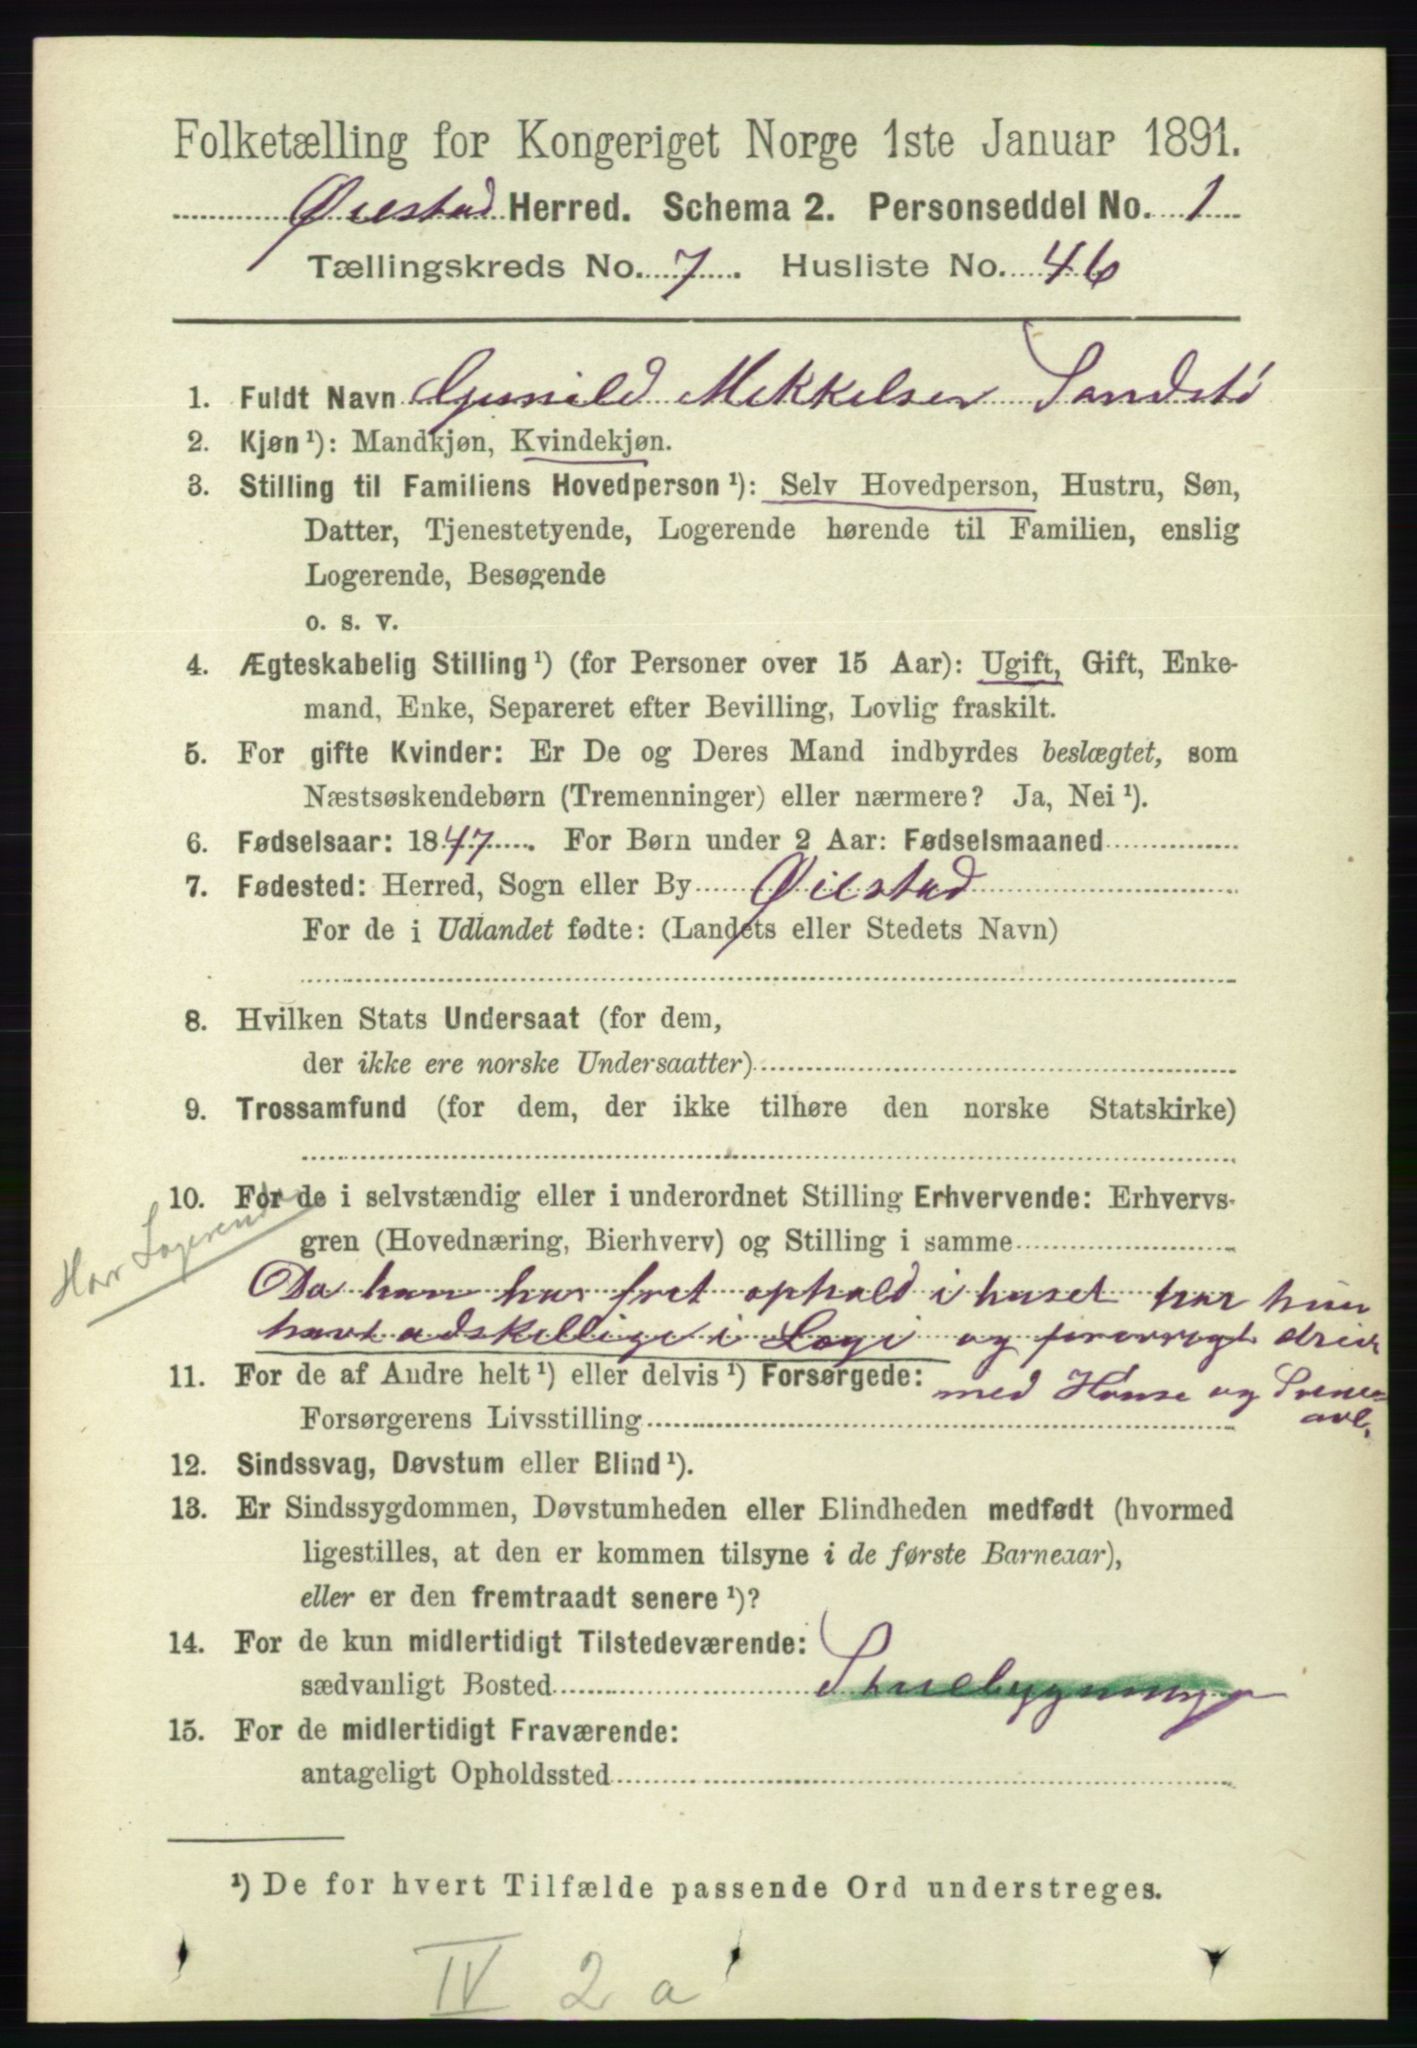 Folketælling for Kongeriget Norge 1ste Januar 1891.
Øiestad Herred. Schema 2. Personseddel No. 1
Tællingskreds No. 7. Husliste No. 46
1. Fuldt Navn Gunild Mekkelsen Sandstö
2. Kjøn ¹): Mandkjøn, Kvindekjøn.
3. Stilling til Familiens Hovedperson ¹): Selv Hovedperson, Hustru, Søn,
Datter, Tjenestetyende, Logerende hørende til Familien, enslig
Logerende, Besøgende
o. s. v.
4. Ægteskabelig Stilling ¹) (for Personer over 15 Aar): Ugift, Gift, Enke-
mand, Enke, Separeret efter Bevilling, Lovlig fraskilt.
5. For gifte Kvinder: Er De og Deres Mand indbyrdes beslægtet, som
Næstsøskendebørn (Tremenninger) eller nærmere? Ja, Nei ¹).
6. Fødselsaar: 1847. For Børn under 2 Aar: Fødselsmaaned
7. Fødested: Herred, Sogn eller By Øiestad
For de i Udlandet fødte: (Landets eller Stedets Navn)
8. Hvilken Stats Undersaat (for dem,
der ikke ere norske Undersaatter)
9. Trossamfund (for dem, der ikke tilhøre den norske Statskirke)
10. For de i selvstændig eller i underordnet Stilling Erhvervende: Erhvervs-
gren (Hovednæring, Bierhverv) og Stilling i samme
Har Logerende
Da hun har frit ophold i huset har hun
havt adskillige i Logi og forövrigt driv
11. For de af Andre helt ¹) eller delvis ¹) Forsørgede: med Hönse og Svine-
Forsørgerens Livsstilling avl.
12. Sindssvag, Døvstum eller Blind ¹).
13. Er Sindssygdommen, Døvstumheden eller Blindheden medfødt (hvormed
ligestilles, at den er kommen tilsyne i de første Barneaar),
eller er den fremtraadt senere ¹)?
14. For de kun midlertidigt Tilstedeværende:
sædvanligt Bosted Stuebygning
15. For de midlertidigt Fraværende:
antageligt Opholdssted
¹) De for hvert Tilfælde passende Ord understreges.
IV 2 a